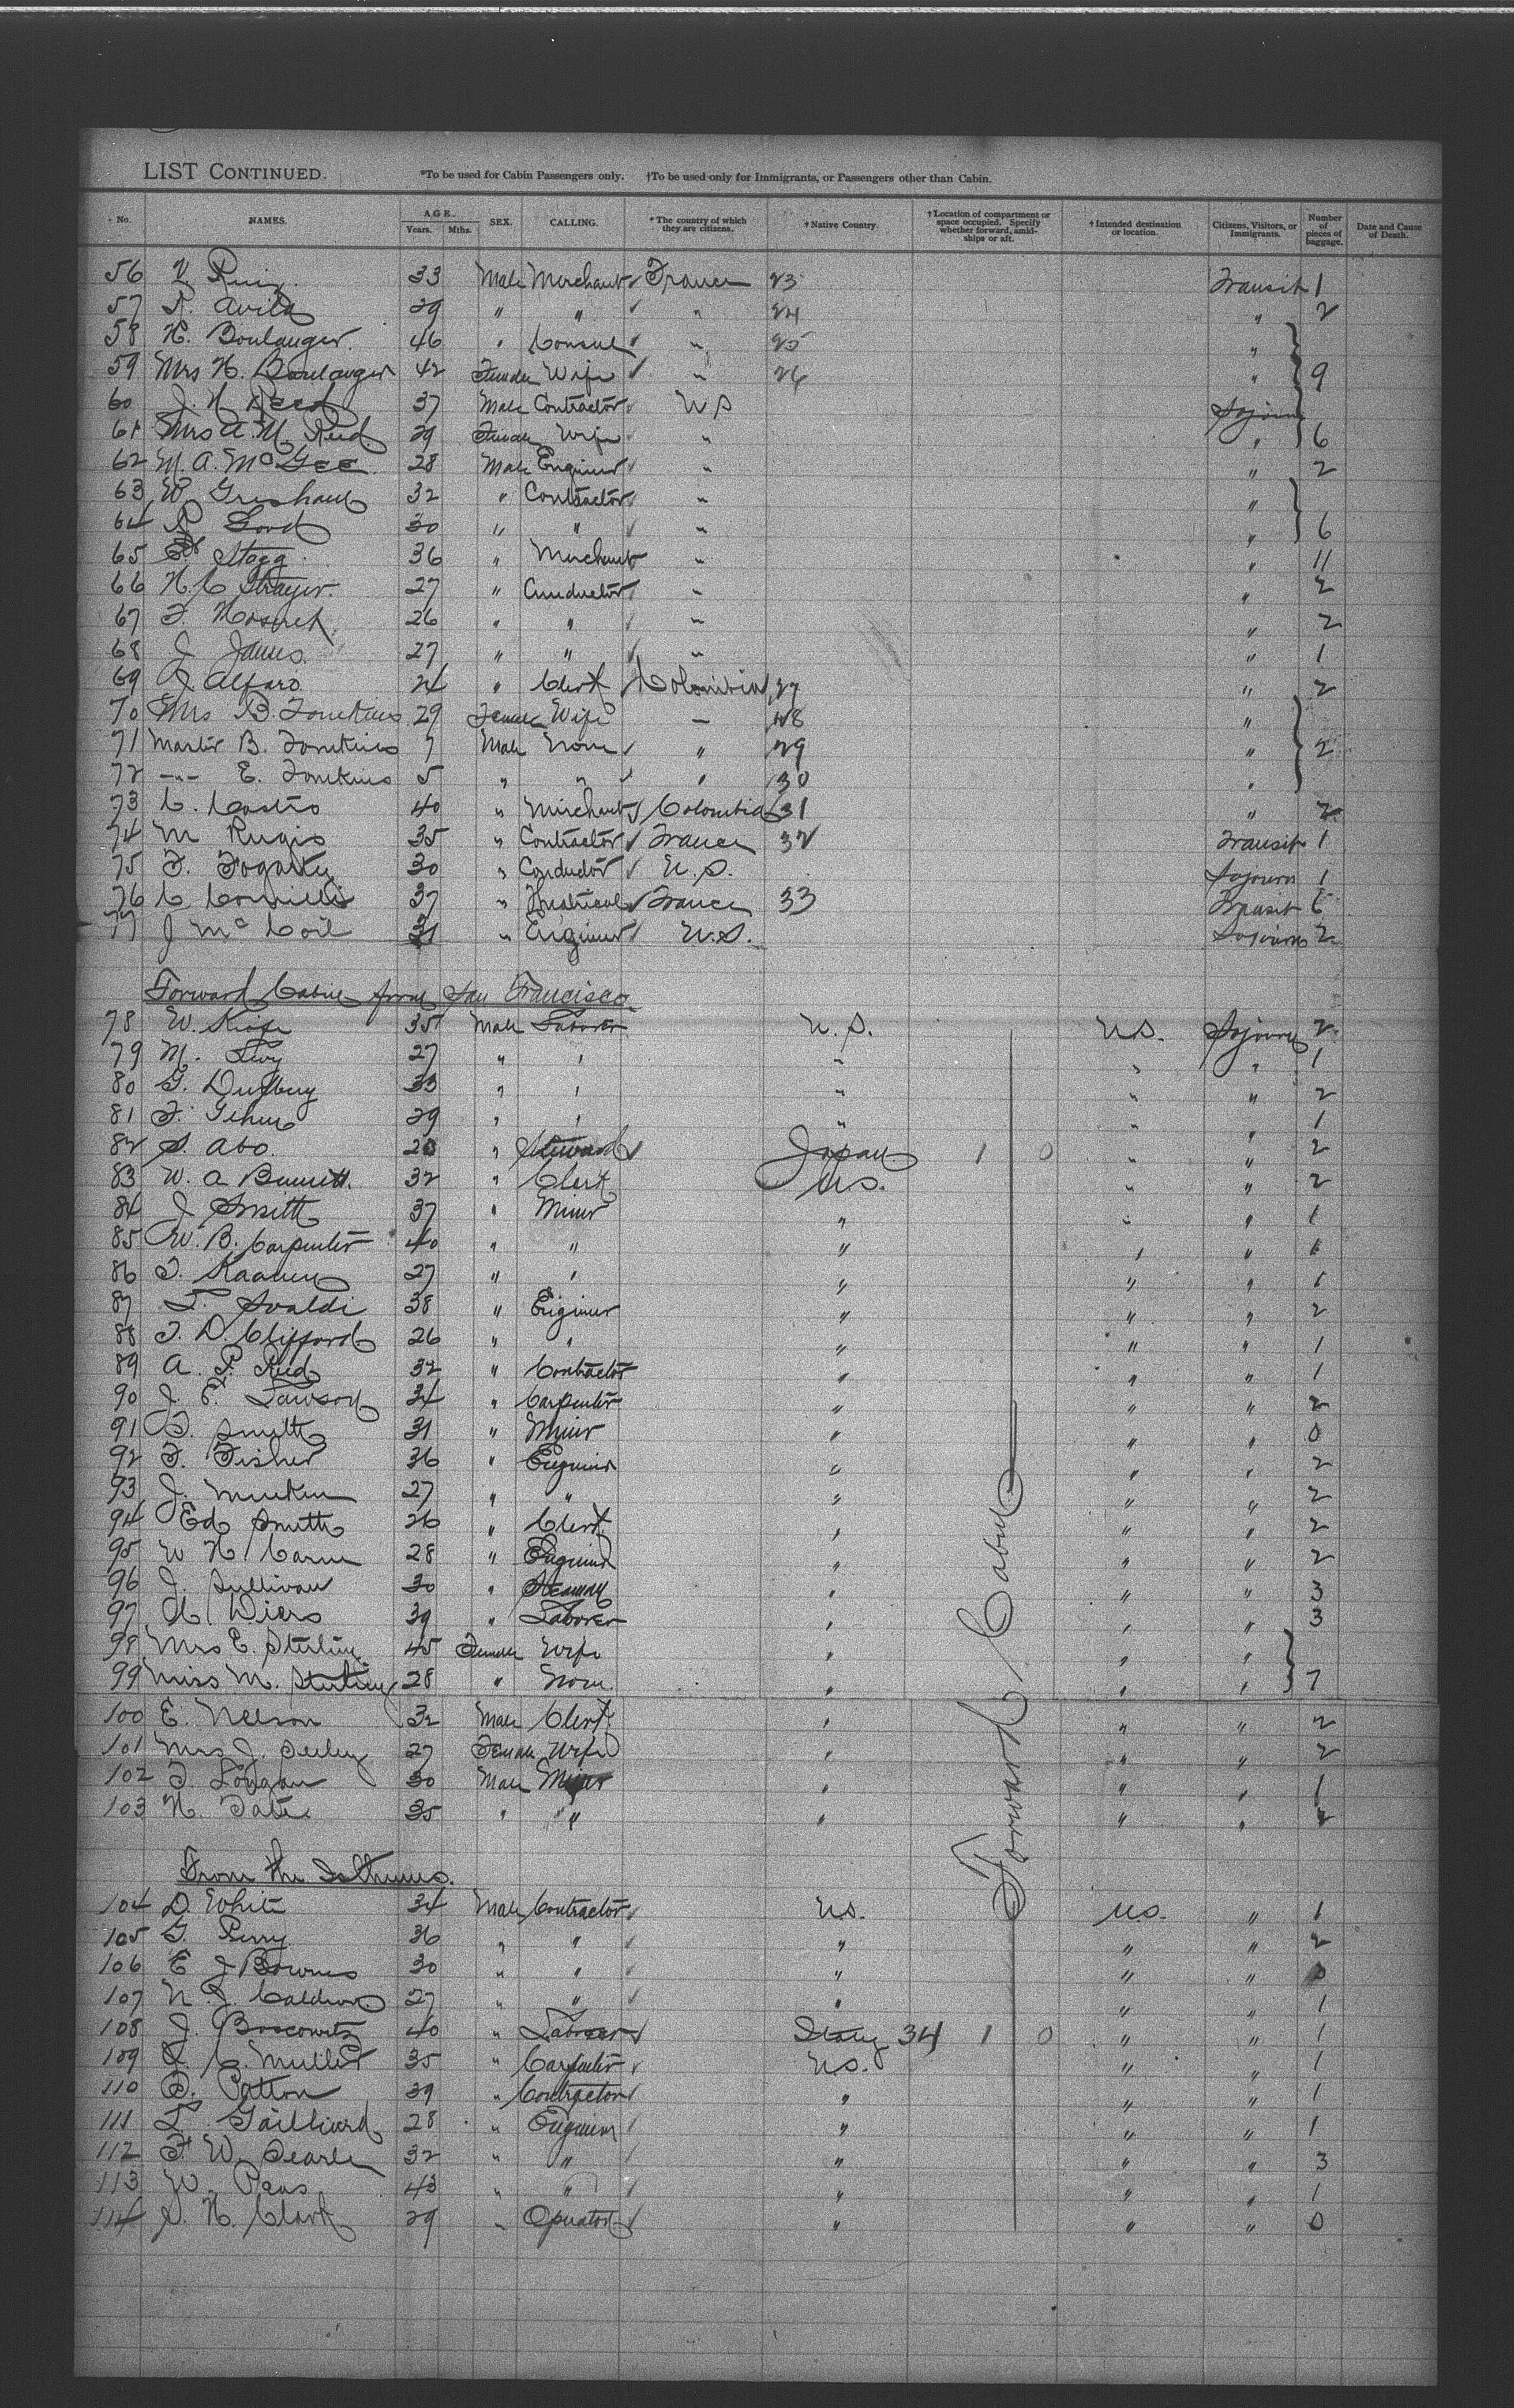 LIST CONTINUED. *To be used for Cabin Passengers only. †To be used only for Immigrants, or Passengers other than Cabin.
No. NAMES. AGE. Years. Mths. SEX. CALLING. *The country of which they are citizens. †Native Country. †Location of compartment or space occupied. Specify whether forward, amidships or aft. †Intended destination or location. Citizens, Visitors, or Immigrants. Number of pieces of baggage. Date and Cause of Death.
56 V Ruiz 33 Male Merchant France 23 Transit 1
57 Avila 29 " " " 24 " 2
58 H. Boulanger 46 " Consul " 25 "
59 Mrs H. Boulanger 42 Female Wife " 26 " 9
60 J. H Reed 37 Male Contractor U S Sojourn
61 Mrs A. M. Reed 29 Female Wife " " 6
62 M. A. McGee 28 Male Engineer " " 2
63 W Gresham 32 " Contractor " "
64 30 " " " " 6
65 Stagg 36 " Merchant " " 11
66 H. C Thayer 27 " Conductor " " 2
67 26 " " " " 2
68 J James 27 " " " " 1
69 J Alfaro 24 " Clerk Colombia 27 " 2
70 Mrs B. Tomkins 29 Female Wife — 28 "
71 Master B. Tomkins 7 Male None " 29 " 2
72 -"- E. Tomkins 5 " " " 30 "
73 C. Castro 40 " Merchant Colombia 31 " 2
74 M Regis 35 " Contractor France 32 Transit 1
75 F. Fogarty 30 " Conductor U.S. Sojourn 1
76 C 37 " France 33 Transit 6
77 J McCoil 31 " Engineer U.S. Sojourn 2
Forward Cabin from San Francisco
78 W. 35 Male Laborer U.S. U.S. Sojourn 2
79 M. Levy 27 " " " " " 1
80 G. 33 " " " " " 2
81 29 " " " " " 1
82 S. Abo. 20 " Steward Japan 1 0 " " 2
83 W. A Bennett 32 " Clerk U.S. " " 2
84 J Smith 37 " Miner " " " 1
85 W. B. Carpenter 40 " " " " " 1
86 27 " " " " " 1
87 Svaldi 38 " Engineer " " " 2
88 T. D. Clifford 26 " " " " " 1
89 A. P. Reed 32 " Contractor " " " 1
90 J. F. Lawson 34 " Carpenter " " " 2
91 Smith 31 " Miner " " " 0
92 F. Fisher 36 " Engineer " " " 2
93 J. 27 " " " " " 2
94 Ed Smith 26 " Clerk " " " 2
95 W H 28 " Engineer " " " 2
96 J. Sullivan 30 " Seaman " " " 3
97 Wiers 39 " Laborer " " " 3
98 Mrs E. Sterling 45 Female Wife " " "
99 Miss M. Sterling 28 " None " " " 7
100 E. Nelson 32 Male Clerk " " " 2
101 Mrs J. Seeley 27 Female Wife " " " 2
102 30 Male Miner " " " 1
103 H. Tate 35 " " " " "
Forward Cabin
From the Isthmus.
104 D. White 34 Male Contractor U.S. U.S. " 1
105 G. Perry 36 " " " " " 2
106 E J Bownes 30 " " " " " 0
107 N. J. 27 " " " " " 1
108 J. Boscowitz 40 " Laborer Italy 34 1 0 " " 1
109 C. Muller 35 " Carpenter U.S. " " 1
110 Patton 39 " Contractor " " " 1
111 Gailliard 28 " Engineer " " " 1
112 F. W. Searle 32 " " " " " 3
113 W. 43 " " " " " 1
114 S. H. Clark 29 " Operator " " " 0